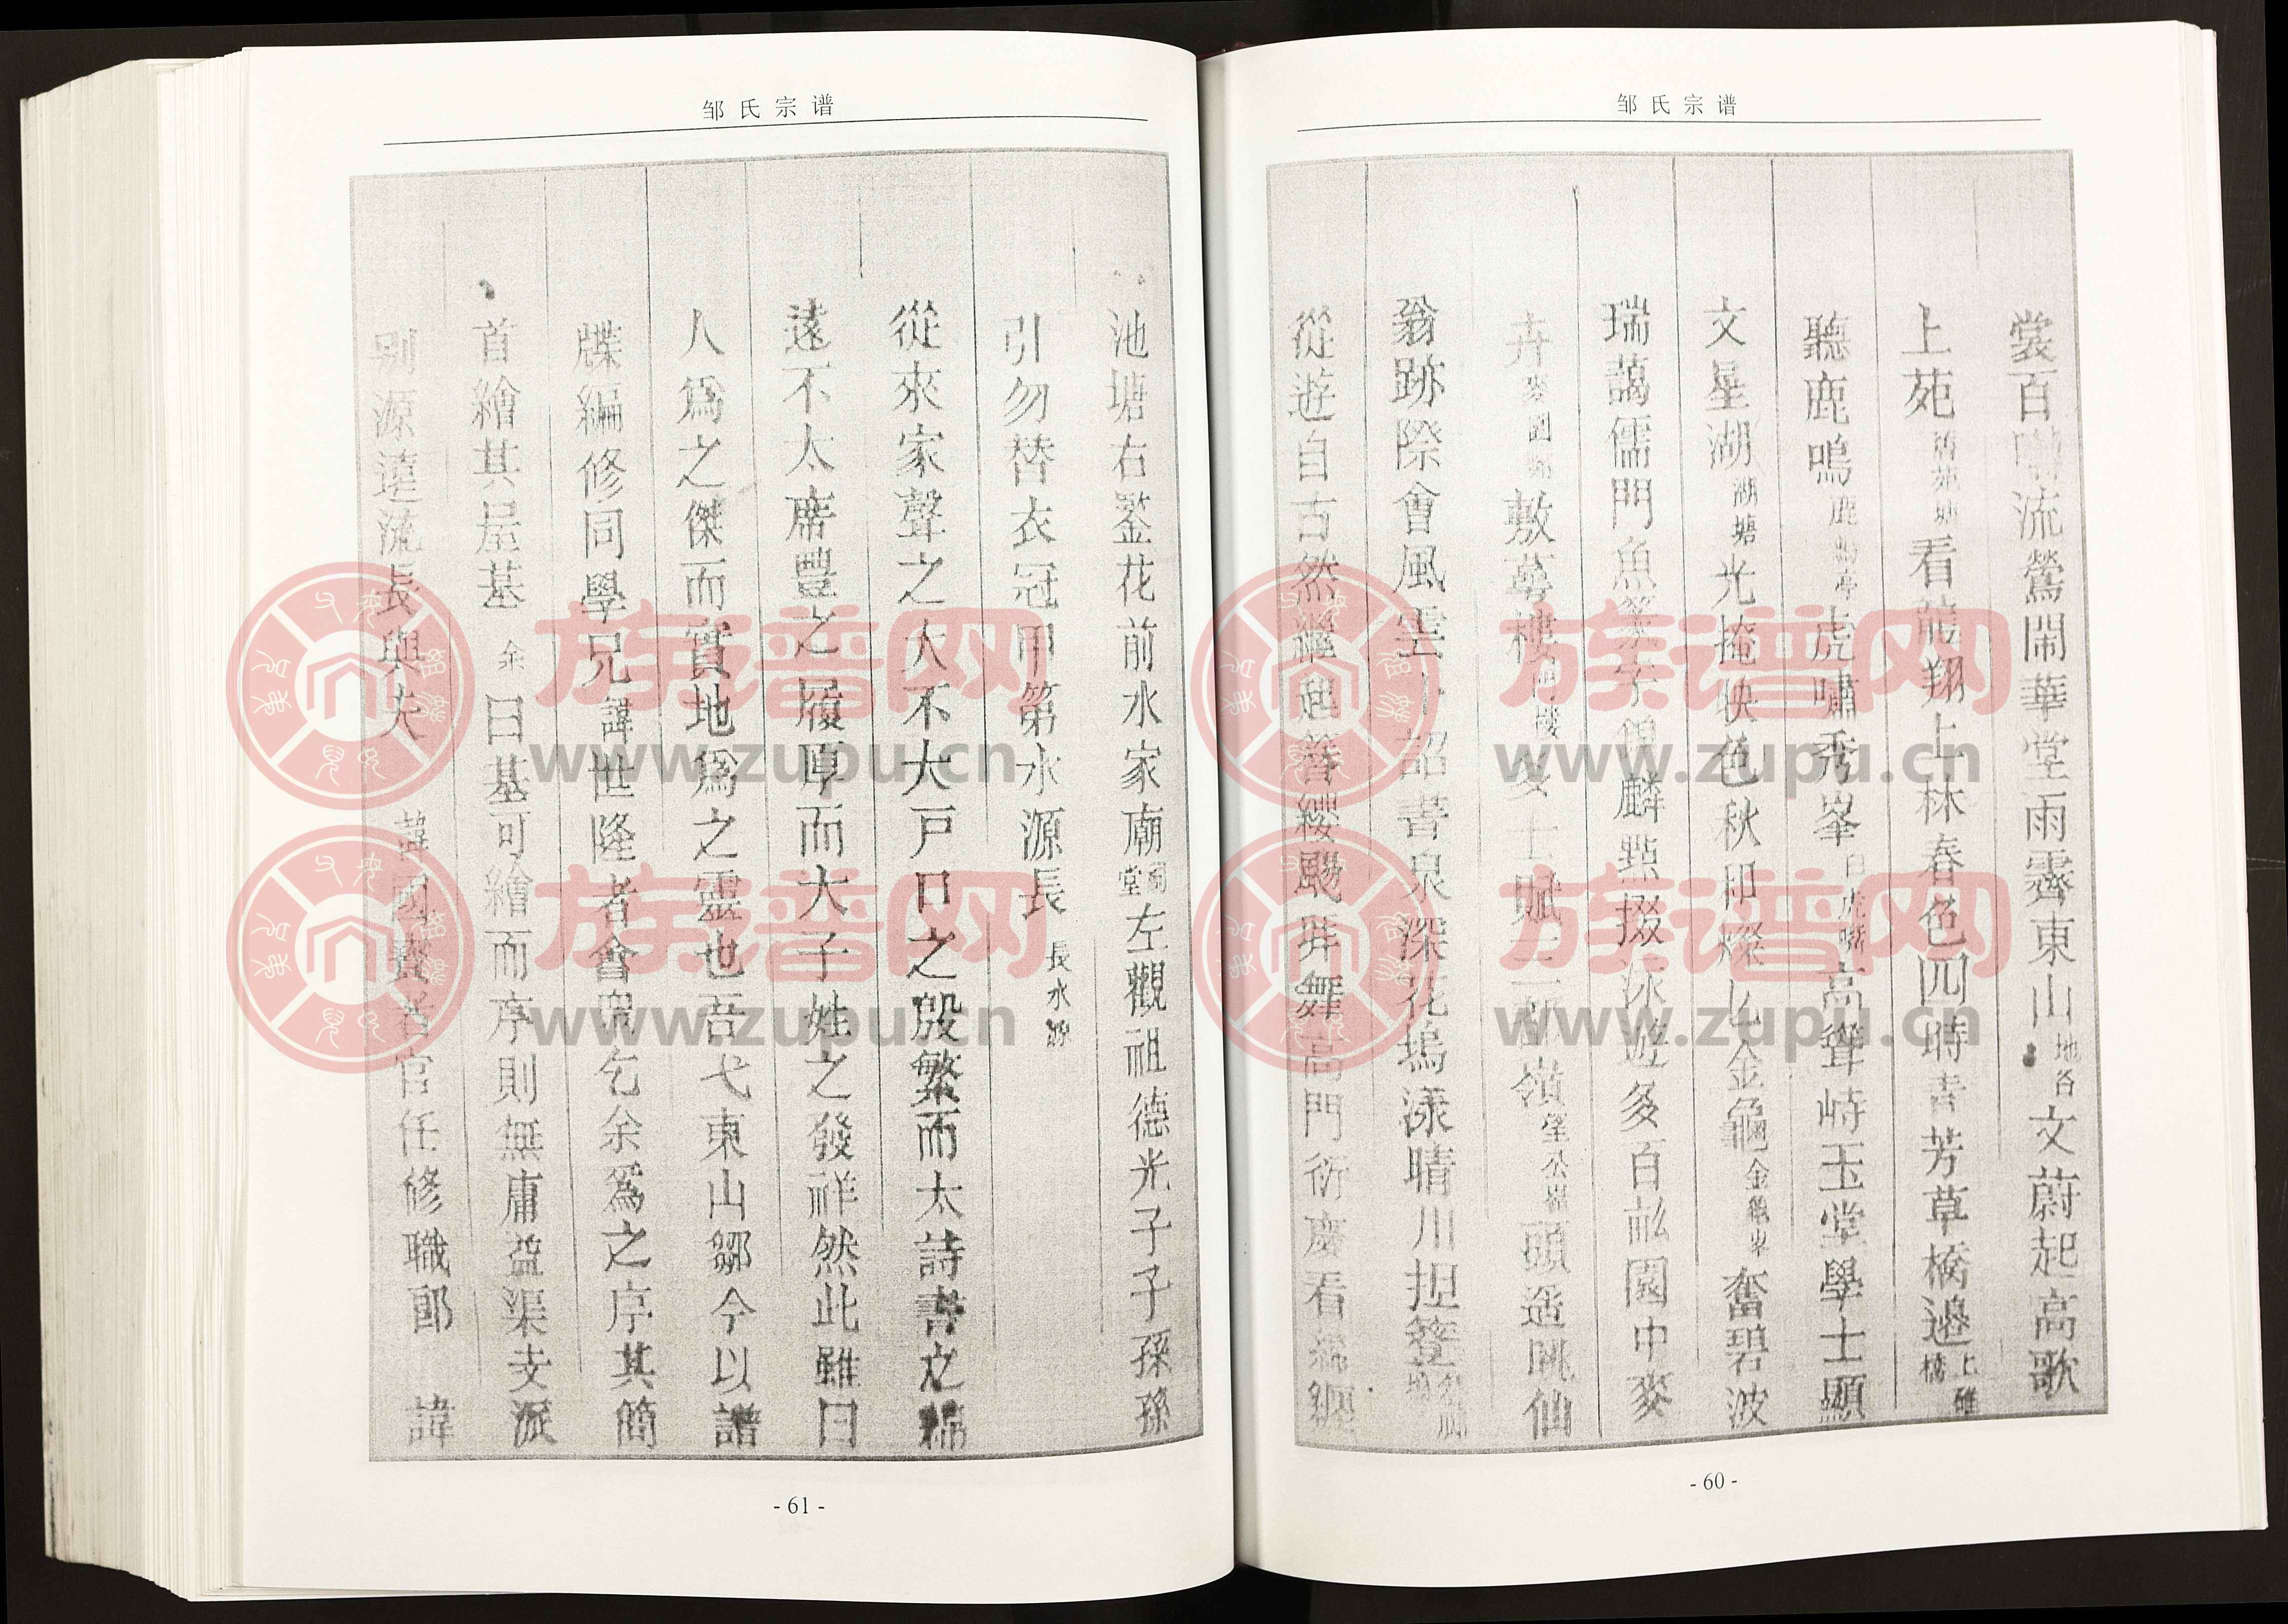 邹氏宗谱
裳百囀流鶯閙華堂雨霽東山地名文蔚起高歌
上苑看龍翔上林春色四時青芳草橋邊上碓橋
聽鹿鳴鹿鳴亭虎嘯秀峯白虎嘴高聳峙玉堂學士顯
文星湖湖塘光掩映色秋和燦乚金龜奮碧波
瑞藹儒門魚麟點掇泳遊多百畝園中麥
卉敷蕚樓女士賦嶺頭遥眺仙
翁跡際會風雲詔書泉深花塢漾晴川担簦
從遊自古然繼起簪纓颺拜舞高門衍慶看纏
- 60 -
邹氏宗谱
池塘右鋻花前水家廟祠堂左觀祖德光子子孫孫
引勿替衣冠甲第水源長長水源
從來家聲之大不大戸口之殷繁而太詩書之綿
遠不太席豐之履厚而大子姓之發祥然此雖曰
人爲之傑而實地爲之靈也吾弋東山鄒今以譜
牒編修同學兄諱世隆者會衆乞余爲之序其簡
首繪其屋基余曰基可繪而序則無庸益渠支派
别源遠流長與夫諱國賓者官任修職郎諱
- 61 -
族谱网
www.zupu.cn
族谱网
www.zupu.cn
族谱网
www.zupu.cn
族谱网
www.zupu.cn